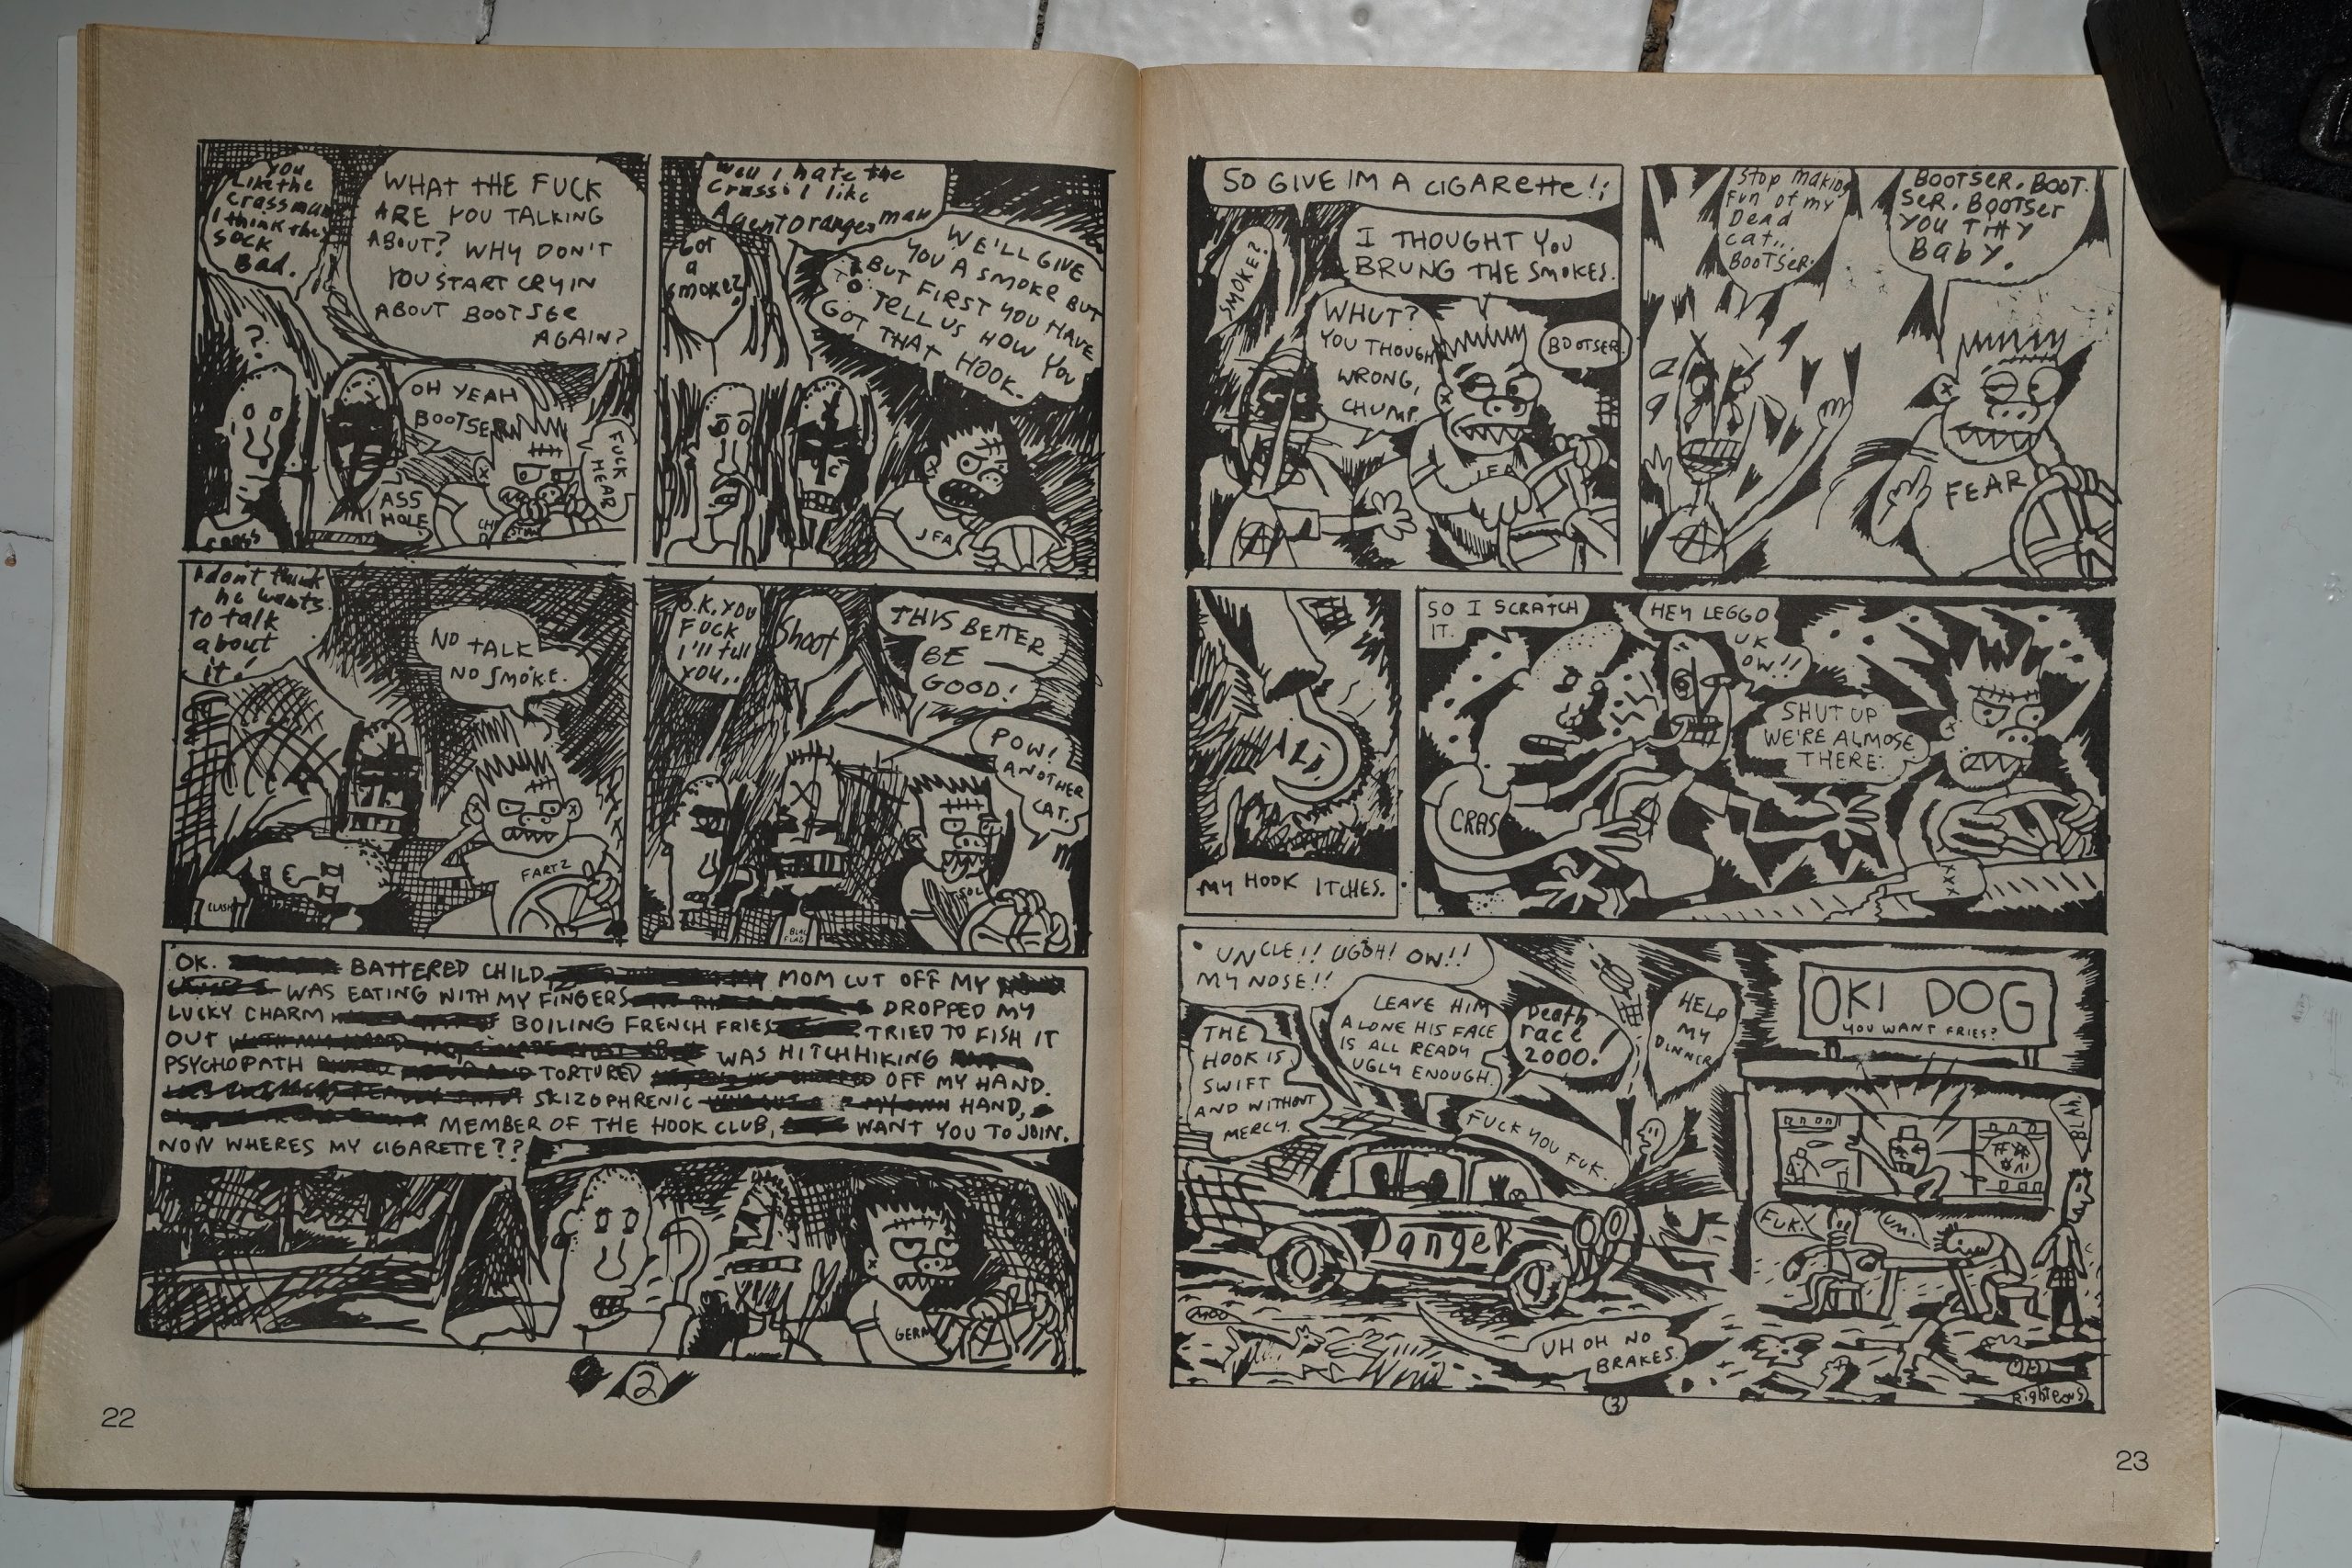 You
Like the
Crass man
I think they
sock
Bad.
WHAT THE FUCK
ARE YOU TALKING
ABOUT? WHY DON'T
YOU START CRYIN
ABOUT BOOTSER
AGAIN?
?
OH YEAH
BOOTSER
ASS
HOLE
FUCK
HEAR
CRASS
Well I hate the
Crass I like
Agent Orange man
Got
a
smoke?
WE'LL GIVE
YOU A SMOKE BUT
BUT FIRST YOU HAVE
TO TELL US HOW YOU
GOT THAT HOOK.
JFA
I don't think
he wants
to talk
about
it!
NO TALK
NO SMOKE.
CLASH
FARTZ
O.K. YOU
FUCK
I'll tell
YOU..
Shoot
THIS BETTER
BE
GOOD!
POW!
ANOTHER
CAT.
BLAC
FLAG
TSOL
OK. BATTERED CHILD, MOM CUT OFF MY
WAS EATING WITH MY FINGERS DROPPED MY
LUCKY CHARM BOILING FRENCH FRIES TRIED TO FISH IT
OUT WAS HITCHHIKING
PSYCHOPATH TORTURED OFF MY HAND.
SKIZOPHRENIC HAND,
MEMBER OF THE HOOK CLUB, WANT YOU TO JOIN.
NOW WHERES MY CIGARETTE??
GERM
2
22
SO GIVE IM A CIGARETTE!!
SMOKE?
I THOUGHT YOU
BRUNG THE SMOKES.
WHUT?
YOU THOUGH
WRONG,
CHUMP.
BOOTSER
JFA
Stop making
fun of my
Dead
cat..
BOOTSER.
BOOTSER. BOOT.
SER. BOOTSER
YOU TITTY
BABY.
FEAR
MY HOOK ITCHES.
SO I SCRATCH
IT.
HEY LEGGO
UK
OW!!
SHUT UP
WE'RE ALMOSE
THERE.
CRAS
UNCLE!! UGGH! OW!!
MY NOSE!!
THE
HOOK IS
SWIFT
AND WITHOUT
MERCY.
LEAVE HIM
ALONE HIS FACE
IS ALL READY
UGLY ENOUGH.
Death
race
2000!
HELP
MY
DINNER
FUCK YOU FUK.
OKI DOG
YOU WANT FRIES?
BLAH
FUK!
UM.
Danger
MOO
UH OH NO
BRAKES.
Righteous
3
23